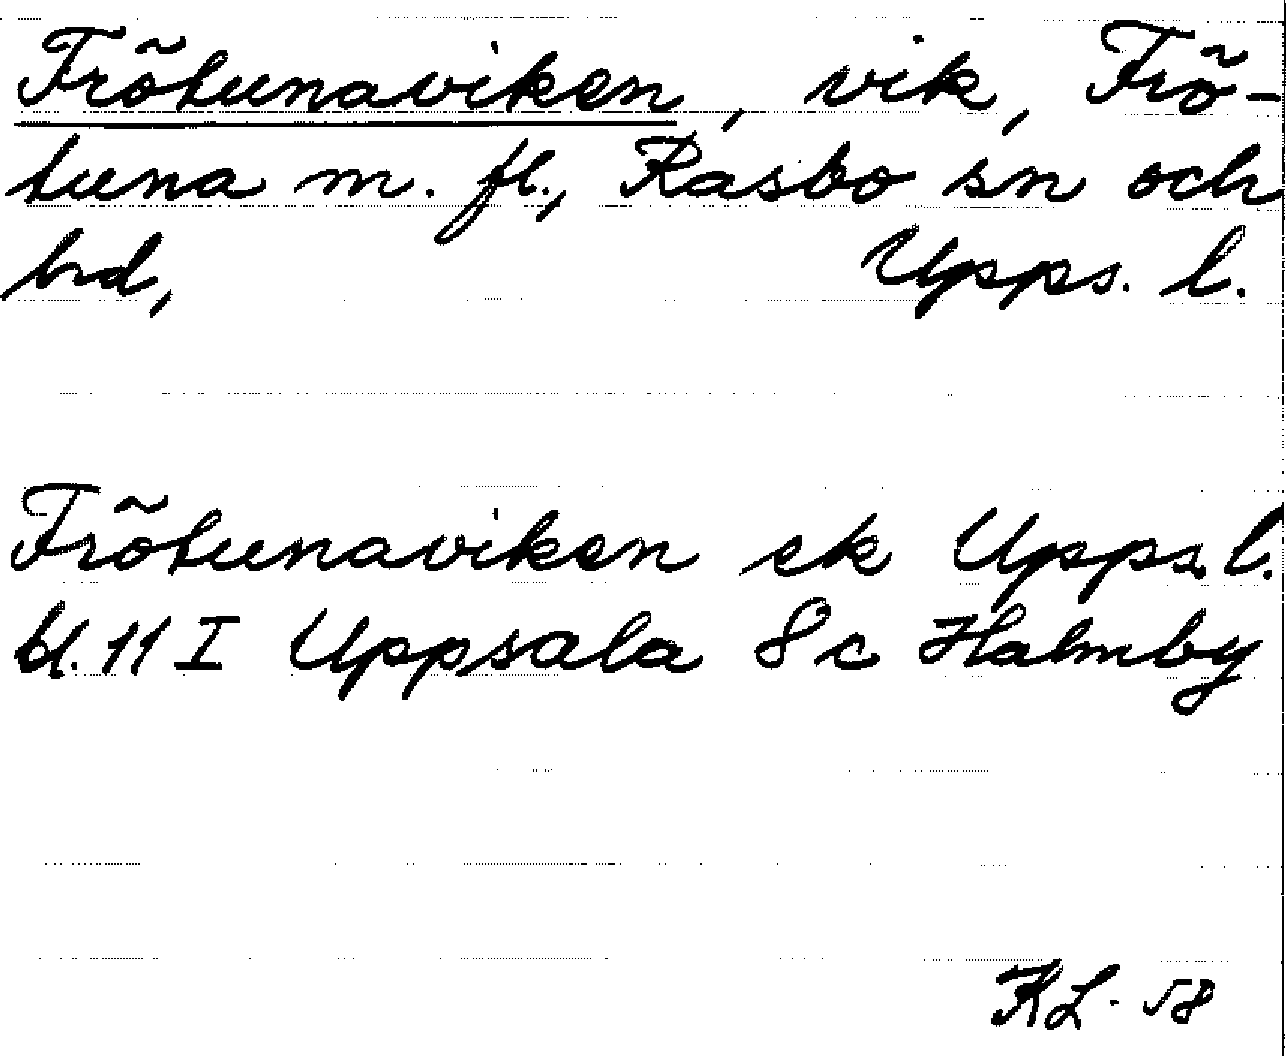 Frötunaviken, vik, Frö-
tuna m. fl., Rasbo sn och
hd, Upps. l.
Frötunaviken ek Upps. l.
bl. 11 I Uppsala 8 c Halmby
KL. 58